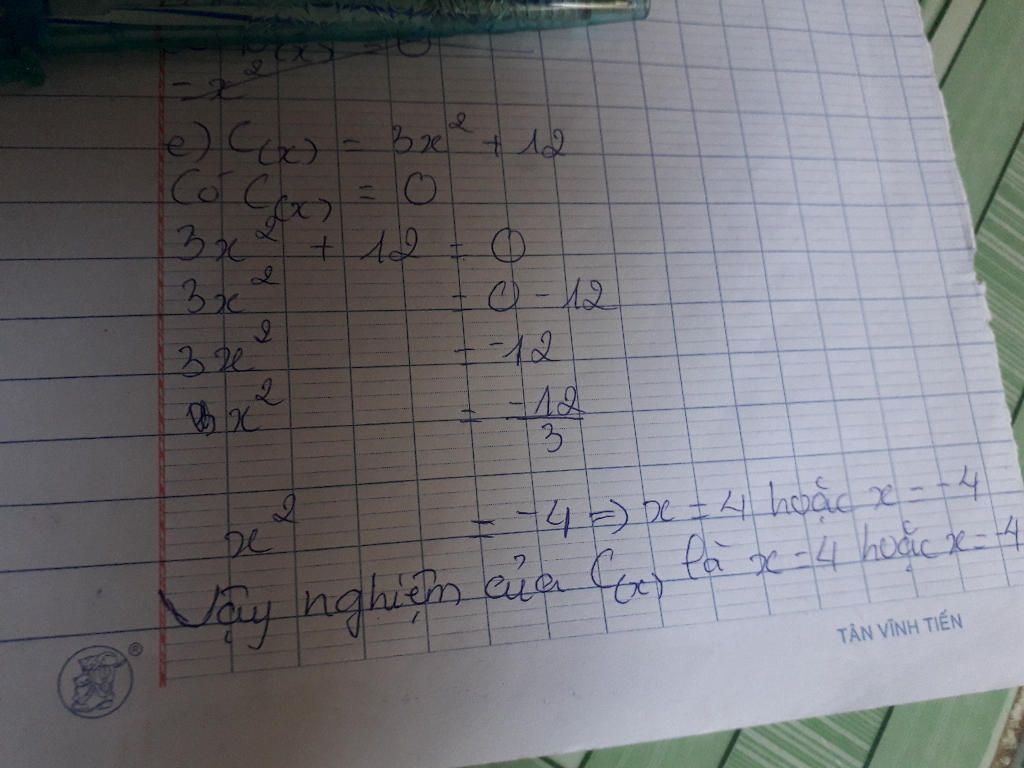 - x²
e) C(x) = 3x² + 12
Có C(x) = 0
3x² + 12 = 0
3x² = 0 - 12
3x² = -12
x² = -12/3
x² = -4 => x = 4 hoặc x = -4
Vậy nghiệm của C(x) là x = 4 hoặc x = -4
TÂN VĨNH TIẾN
®